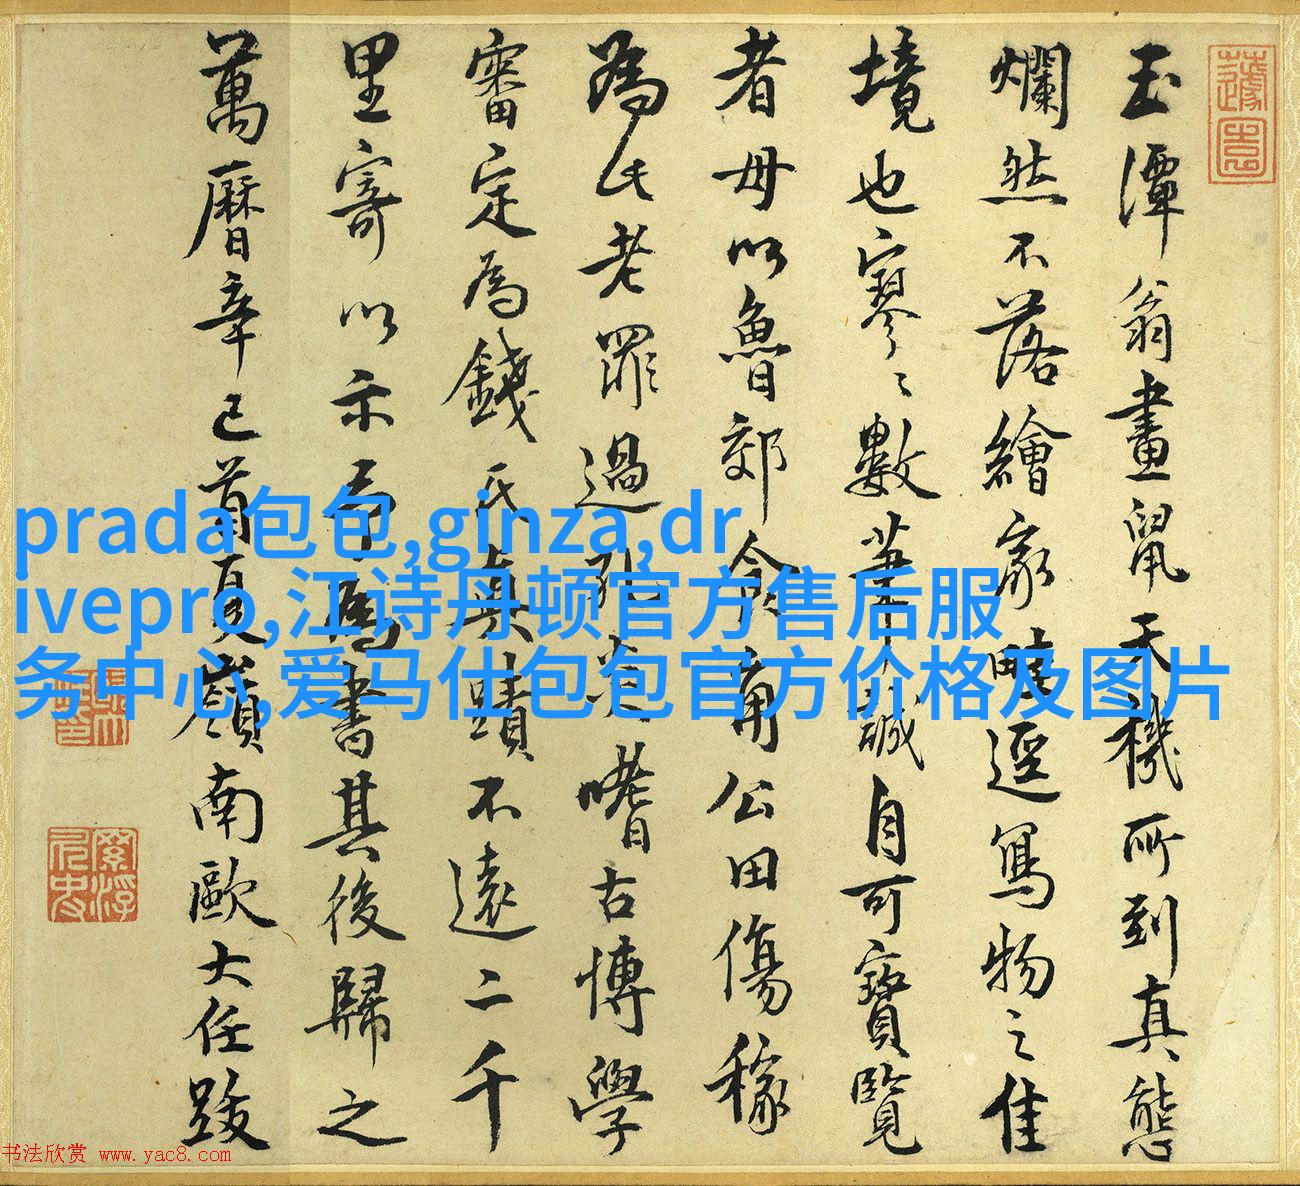 玉潭翁畫鼠天機所到真態
爛然不落繪家畦逕寫物之佳
境也寥々數筆誠自可寶覽
者毋以魯郊食角公田傷稼
為氏老罪過孔炎嗜古博學
審定為錢氏真蹟不遠二千
里寄以示予為書其後歸之
萬曆辛巳首夏嶺南歐大任跋
prada包包,ginza,dr
ivepro,江诗丹顿官方售后服
务中心,爱马仕包包官方价格及图片
书法欣赏 www.yac8.com